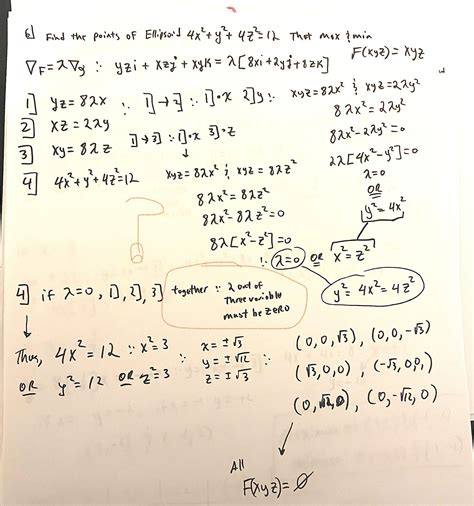 6] Find the points of Ellipsoid 4x²+y²+4z²=12 That max & min
F(xyz) = xyz
∇F=λ∇g ∴ yzi + xzj + xyk = λ[8xi+2yj+8zk]
1] yz=8λx ∴ 1]→2] ∴ 1]·x 2]y ∴ xyz=8λx² ; xyz=2λy²
2] xz=2λy
3] xy=8λz
4] 4x²+y²+4z²=12
8λx²=2λy²
8λx²-2λy²=0
2λ[4x²-y²]=0
λ=0
OR
y²=4x²
1]→3] ∴ 1]·x 3]·z
xyz=8λx² ; xyz=8λz²
8λx²=8λz²
8λx²-8λz²=0
8λ[x²-z²]=0
∴ λ=0 OR x²=z²
y²=4x²=4z²
4] if λ=0, 1], 2], 3] together ∴ 2 out of
three variable
must be ZERO
Thus, 4x²=12 ∴ x²=3
OR y²=12 OR z²=3
x=±√3
y=±√12
z=±√3
(0,0,√3), (0,0,-√3)
(√3,0,0), (-√3,0,0,)
(0,√12,0), (0,-√12,0)
All
F(xyz)=0